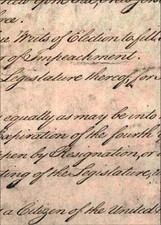 Writs of Election to fill
of Impeachment.
Legislature thereof, for
equally as may be into
Expiration of the fourth
happen by Resignation, or
ting of the Legislature,
a Citizen of the United